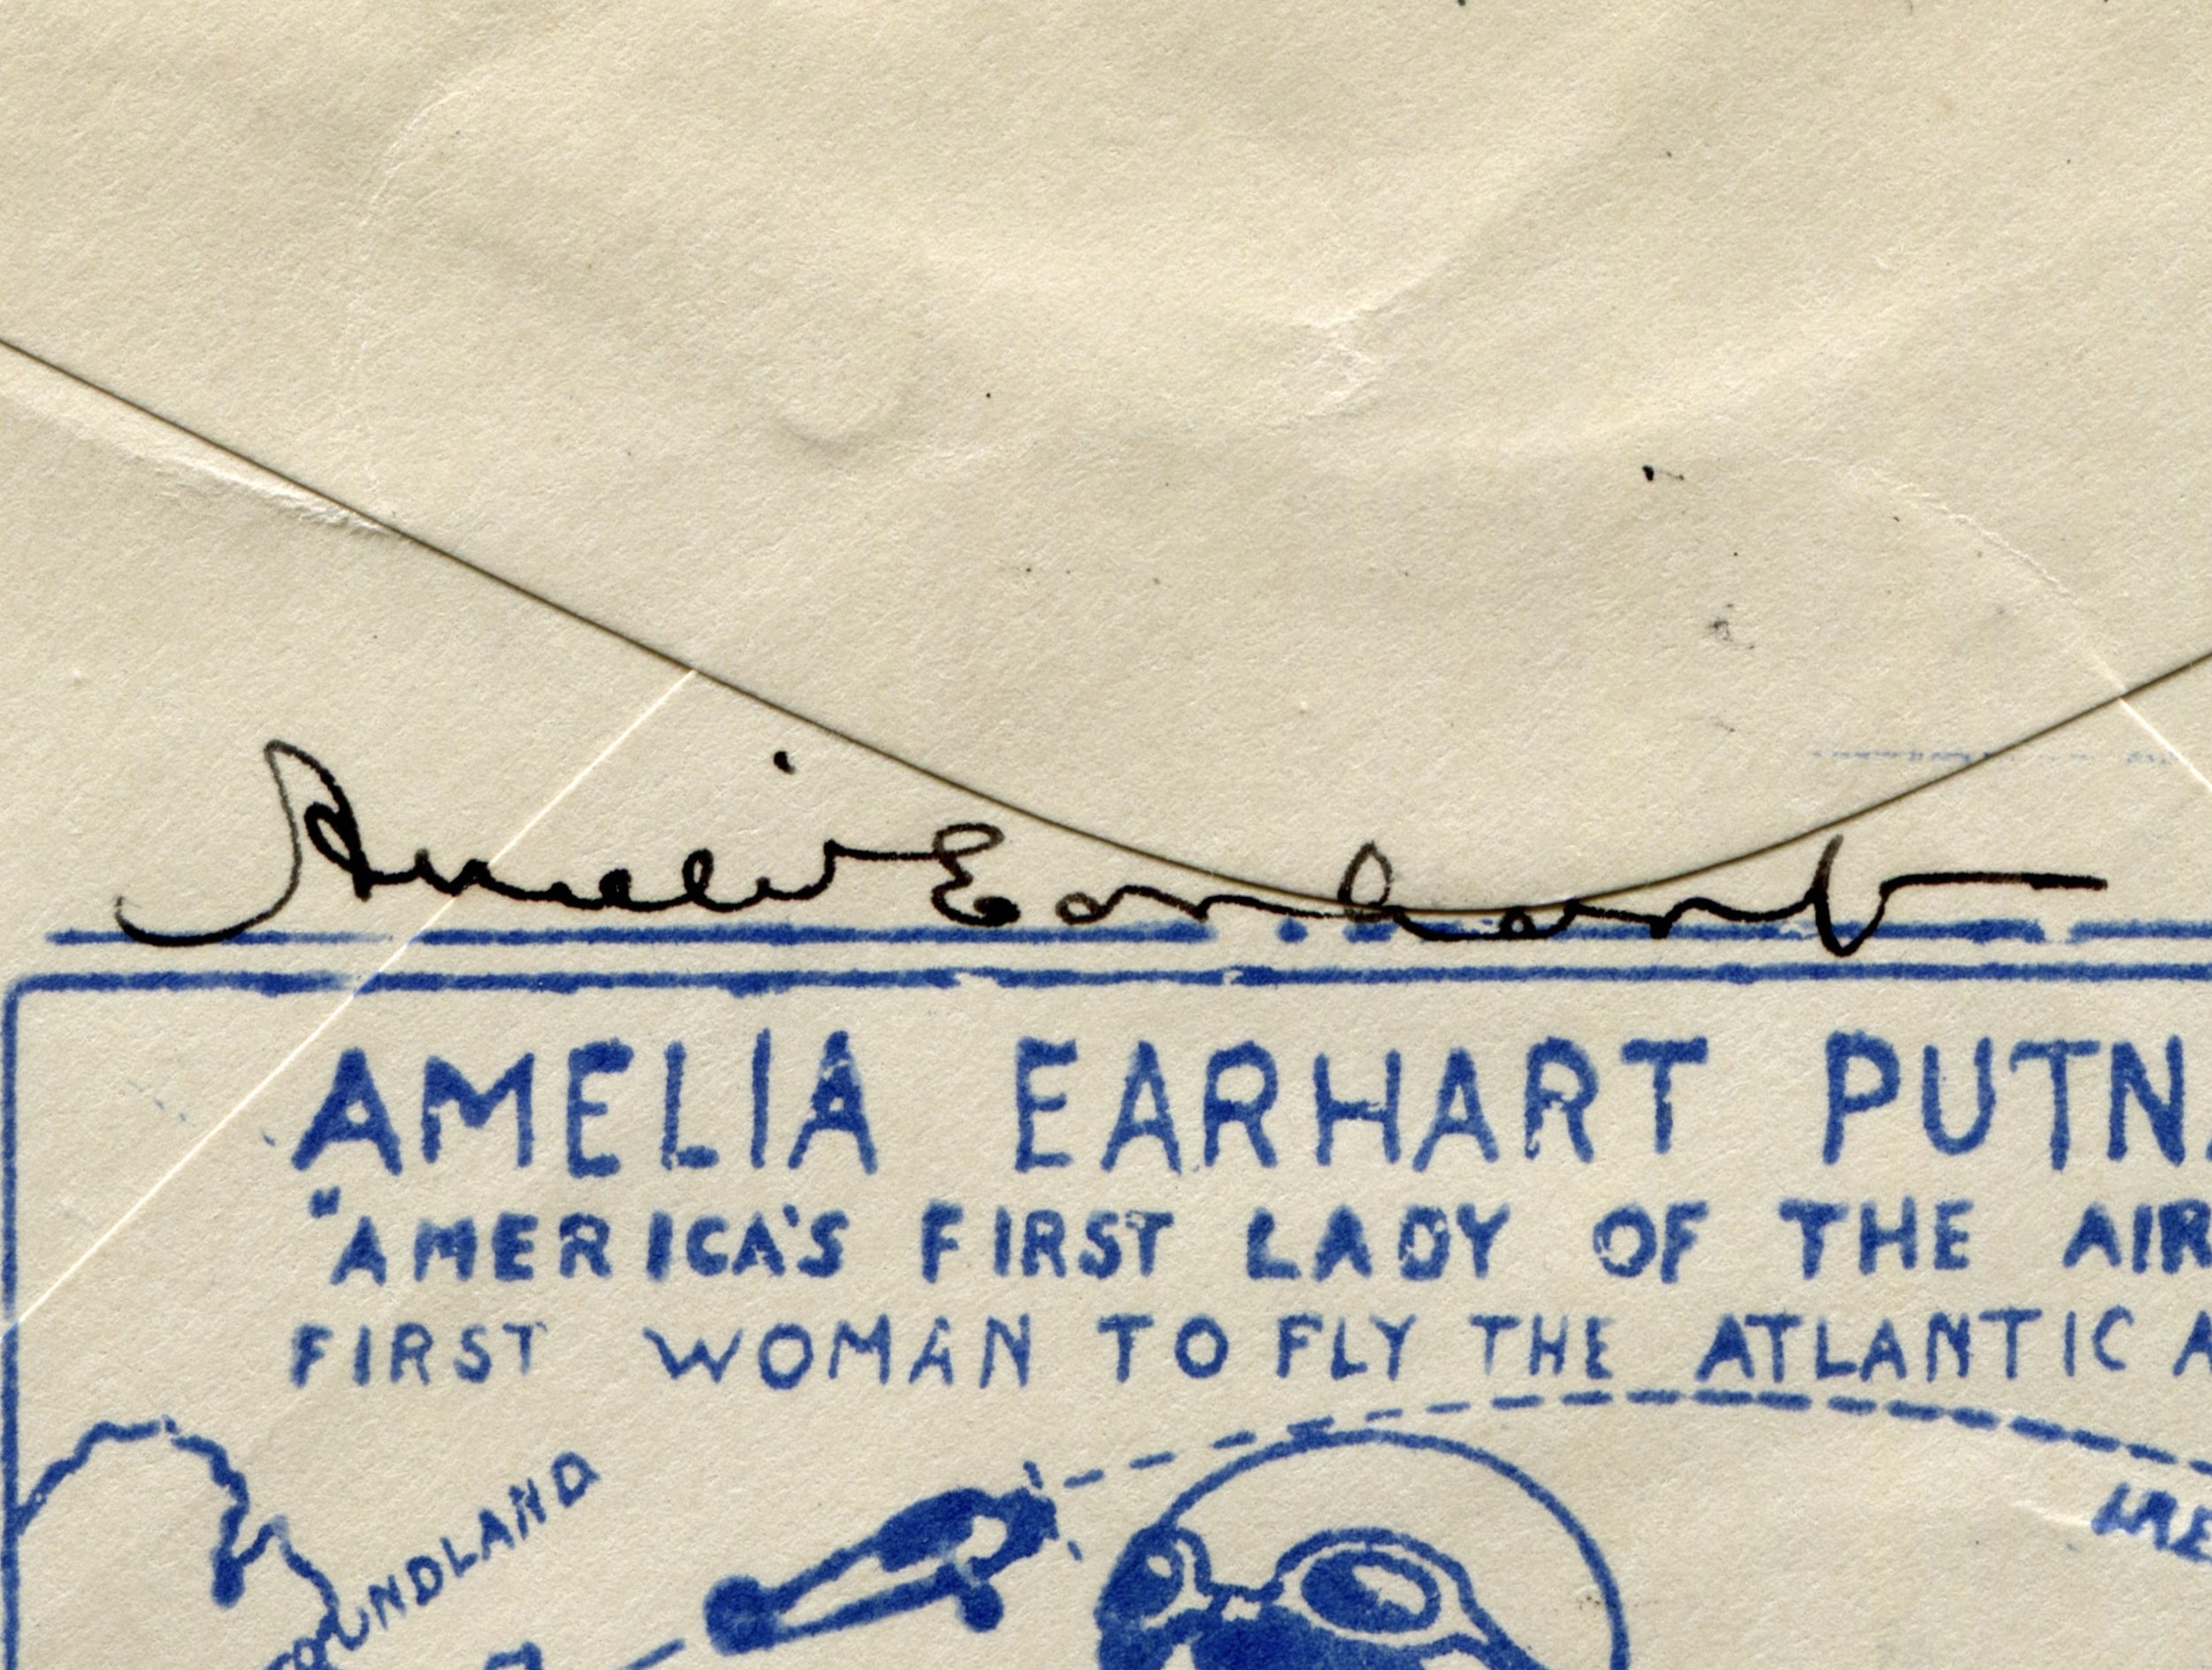 Amelia Earhart
AMELIA EARHART PUTN
"AMERICA'S FIRST LADY OF THE AIR
FIRST WOMAN TO FLY THE ATLANTIC A
OUNDLAND
IRE